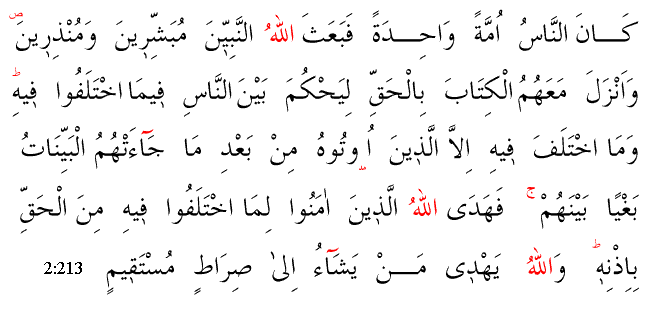 كَـــانَ النَّاسُ اُمَّةً وَاحِـــدَةً فَبَعَثَ اللهُ النَّبِيّٖنَ مُبَشِّرٖينَ وَمُنْذِرٖينَ ۖ
وَاَنْزَلَ مَعَهُمُ الْكِتَابَ بِالْحَقِّ لِيَحْكُمَ بَيْنَ النَّاسِ فٖيمَا اخْتَلَفُوا فٖيهِ ؕ
وَمَا اخْتَلَفَ فٖيهِ اِلاَّ الَّذٖينَ اُوتُوهُ مِنْ بَعْدِ مَا جَٓاءَتْهُمُ الْبَيِّنَاتُ
بَغْيًا بَيْنَهُمْ ۚ فَهَدَى اللهُ الَّذٖينَ اٰمَنُوا لِمَا اخْتَلَفُوا فٖيهِ مِنَ الْحَقِّ
بِاِذْنِهٖ ؕ وَاللهُ يَهْدٖى مَـــنْ يَشَٓاءُ اِلىٰ صِرَاطٍ مُسْتَقٖيمٍ 2:213